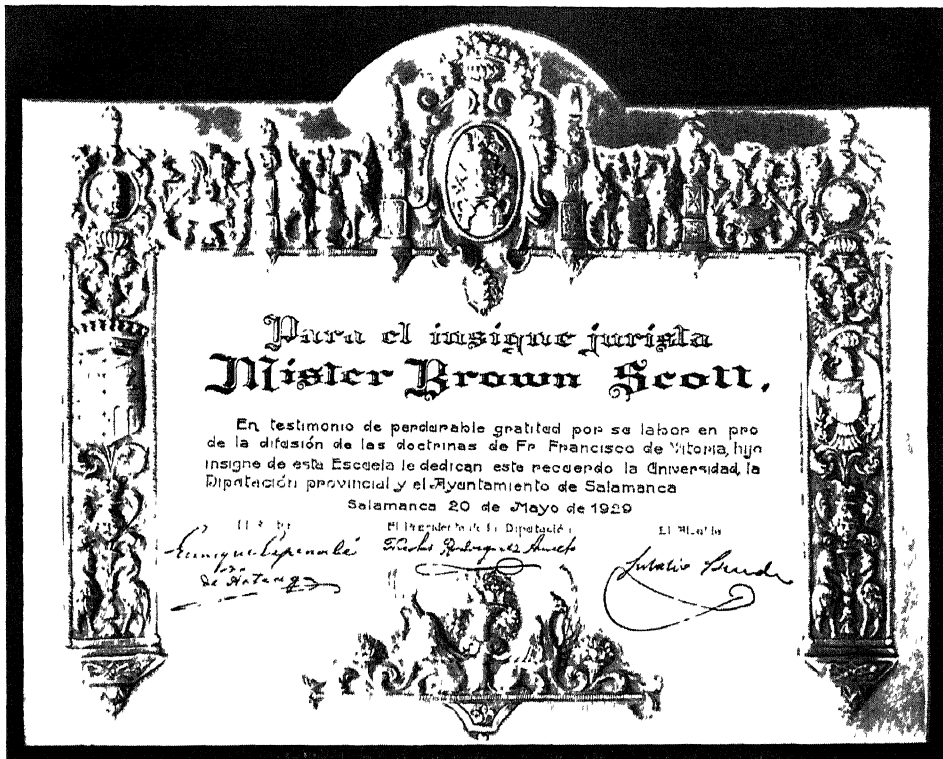 Para el insigne jurista
Mister Brown Scott.
En testimonio de perdurable gratitud por su labor en pro
de la difusión de las doctrinas de Fr Francisco de Vitoria, hijo
insigne de esta Escuela le dedican este recuerdo la Universidad, la
Diputación provincial y el Ayuntamiento de Salamanca
Salamanca 20 de Mayo de 1929
El Presidente de la Diputación
El Alcalde
Enrique
de Arteaga
Nicolas Rodriguez Aniceto